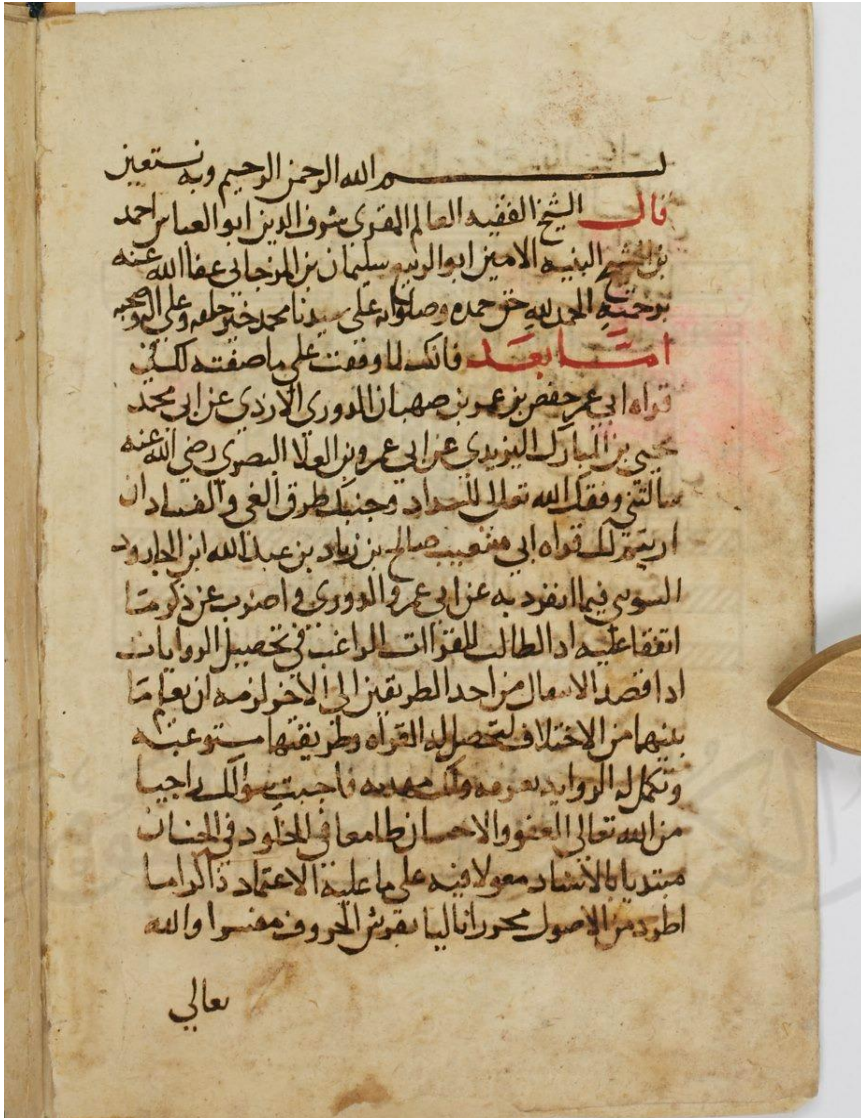 بسم الله الرحمن الرحيم وبه نستعين
قال الشيخ الفقيه العالم المقرى شرف الدين ابو العباس احمد
بن الشيخ النبيه الامين ابو الربيع سليمان بن المرجاني عفا الله عنه
برحمته الحمد لله حق حمده وصلواته على سيدنا محمد خير خلقه وعلى اله وصحبه
امّا بعد فانك لما وقفت على ما صنفته لك في
قراه ابي عمر حفص بن عمر بن صهبان الدوري الازدي عن ابي محمد
يحيى بن المبارك اليزيدي عن ابي عمرو بن العلا البصري رضي الله عنه
سالتني وفقك الله تعالى للسداد وجنبك طرق الغي والفساد ان
ارسم لك قراه ابي شعيب صالح بن زياد بن عبد الله ابن الجارود
السوسي فيما انفرد به عن ابي عمر والدوري واضرب عن ذكر ما
اتفقا عليه اد الطالب للقراات الراغب في تحصيل الروايات
ادا قصد الانتقال من احد الطريقين الى الاخر لزمه ان يعلم ما
بينهما من الاختلاف لتحصل له القراه وطريقتها مستوعبه
وتكمل له الروايه فاجبت سوالك راجيا
من الله تعالى العفو والاحسان طامعا في الخلود في الجنان
مبتديا بالاسناد معولا فيه على ما عليه الاعتماد ذاكرا ما
اطرد من الاصول محررا تاليا بفرش الحروف مفسرا والله
تعالى